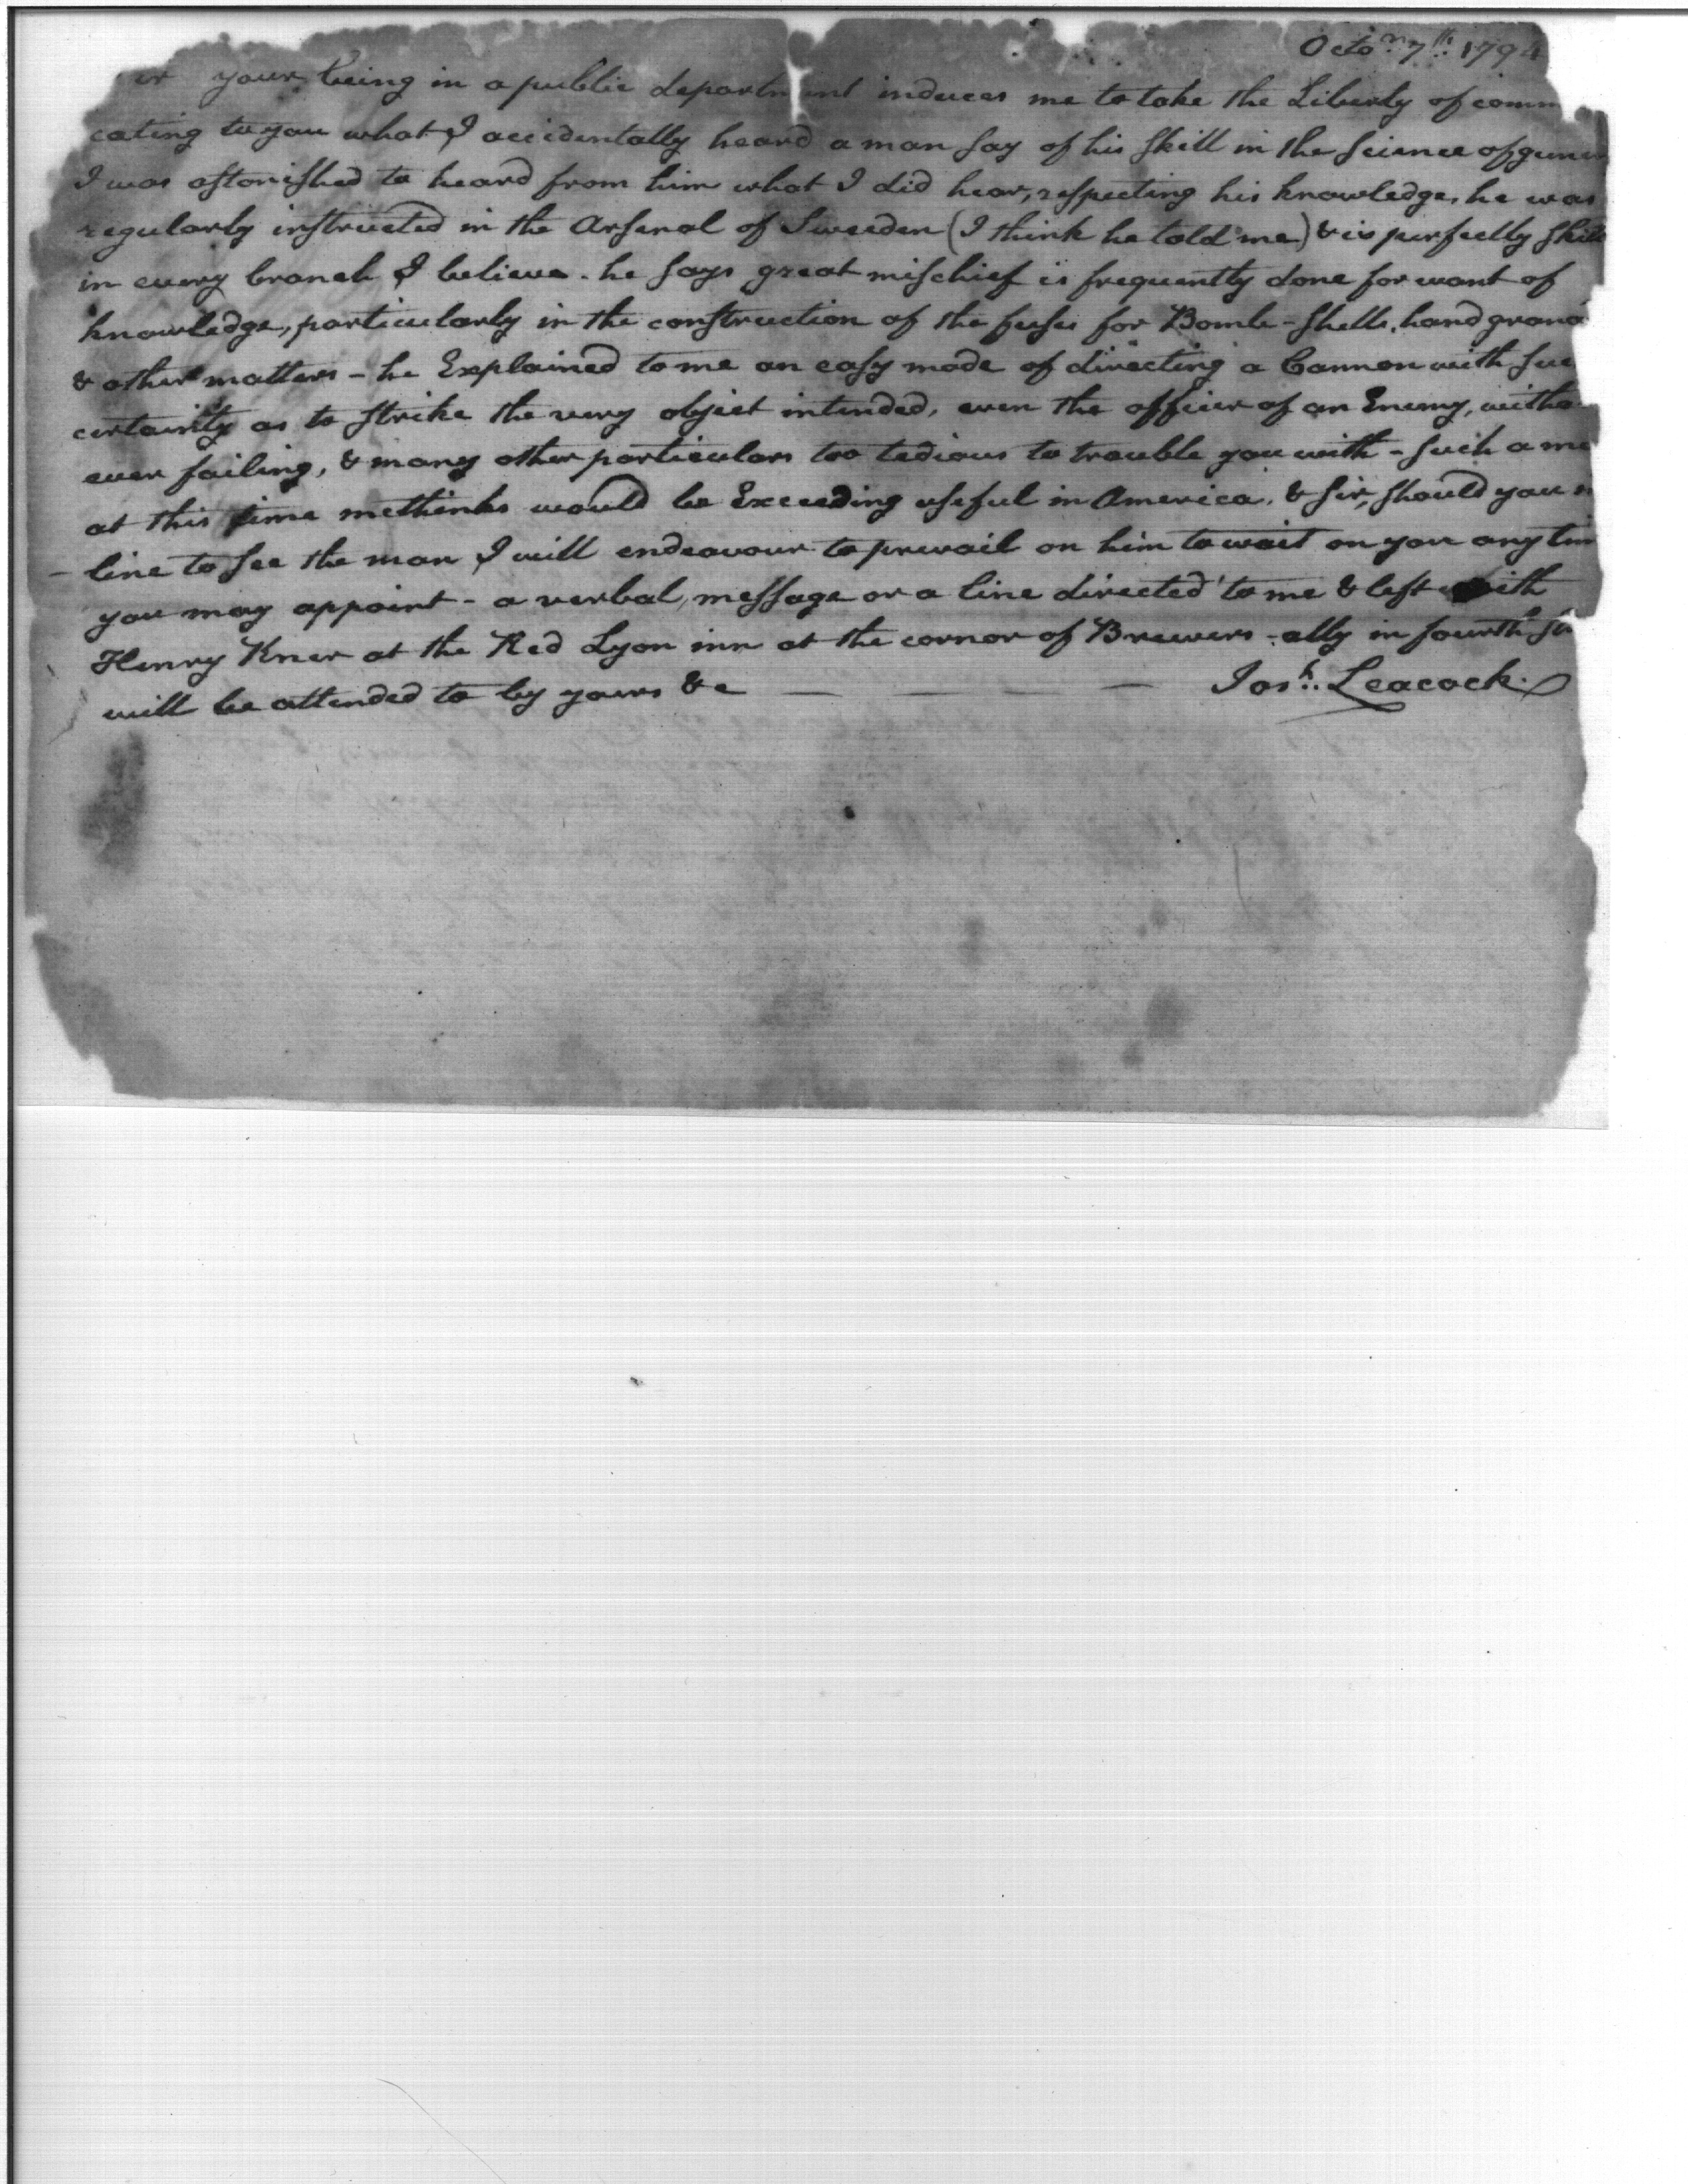 Octo.r 7th: 1794
your being in a public departm ent induces me to take the Liberty of comm
cating to you what I accidentally heard a man say of his skill in the science of gun
I was astonished to heard from him what I did hear, respecting his knowledge, he was
regularly instructed in the Arsenal of Sweeden (I think he told me) & is perfectly skill
in every branch I believe - he says great mischief is frequently done for want of
knowledge, particularly in the construction of the fuses for Bomb-shells, hand grana
& other matters - he Explained to me an easy mode of directing a Cannon with suc
certainty as to strike the very object intended, even the officer of an Enemy, witho
ever failing, & many other particulars too tedious to trouble you with - such a m
at this time methinks would be Exceeding useful in America, & sir, should you
- line to see the man I will endeavour to prevail on him to wait on you any tim
you may appoint - a verbal message or a line directed to me & left with
Henry Knerr at the Red Lyon inn at the cornor of Brewers-ally in fourth st
will be attended to by yours &c — — — Josh: Leacock.